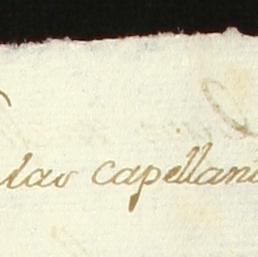 las capellani